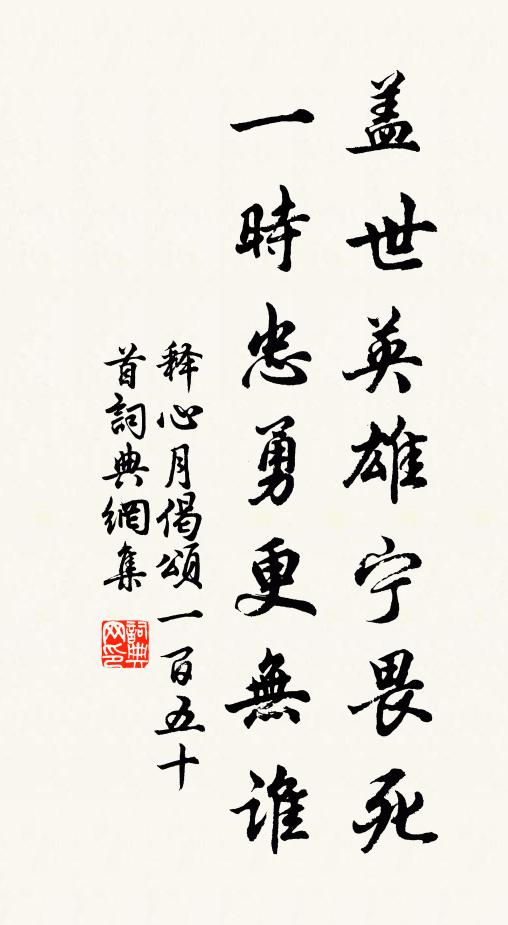 盖世英雄宁畏死
一時忠勇更無誰
释心月偈頌一百五十
首詞典網集
詞典
网印